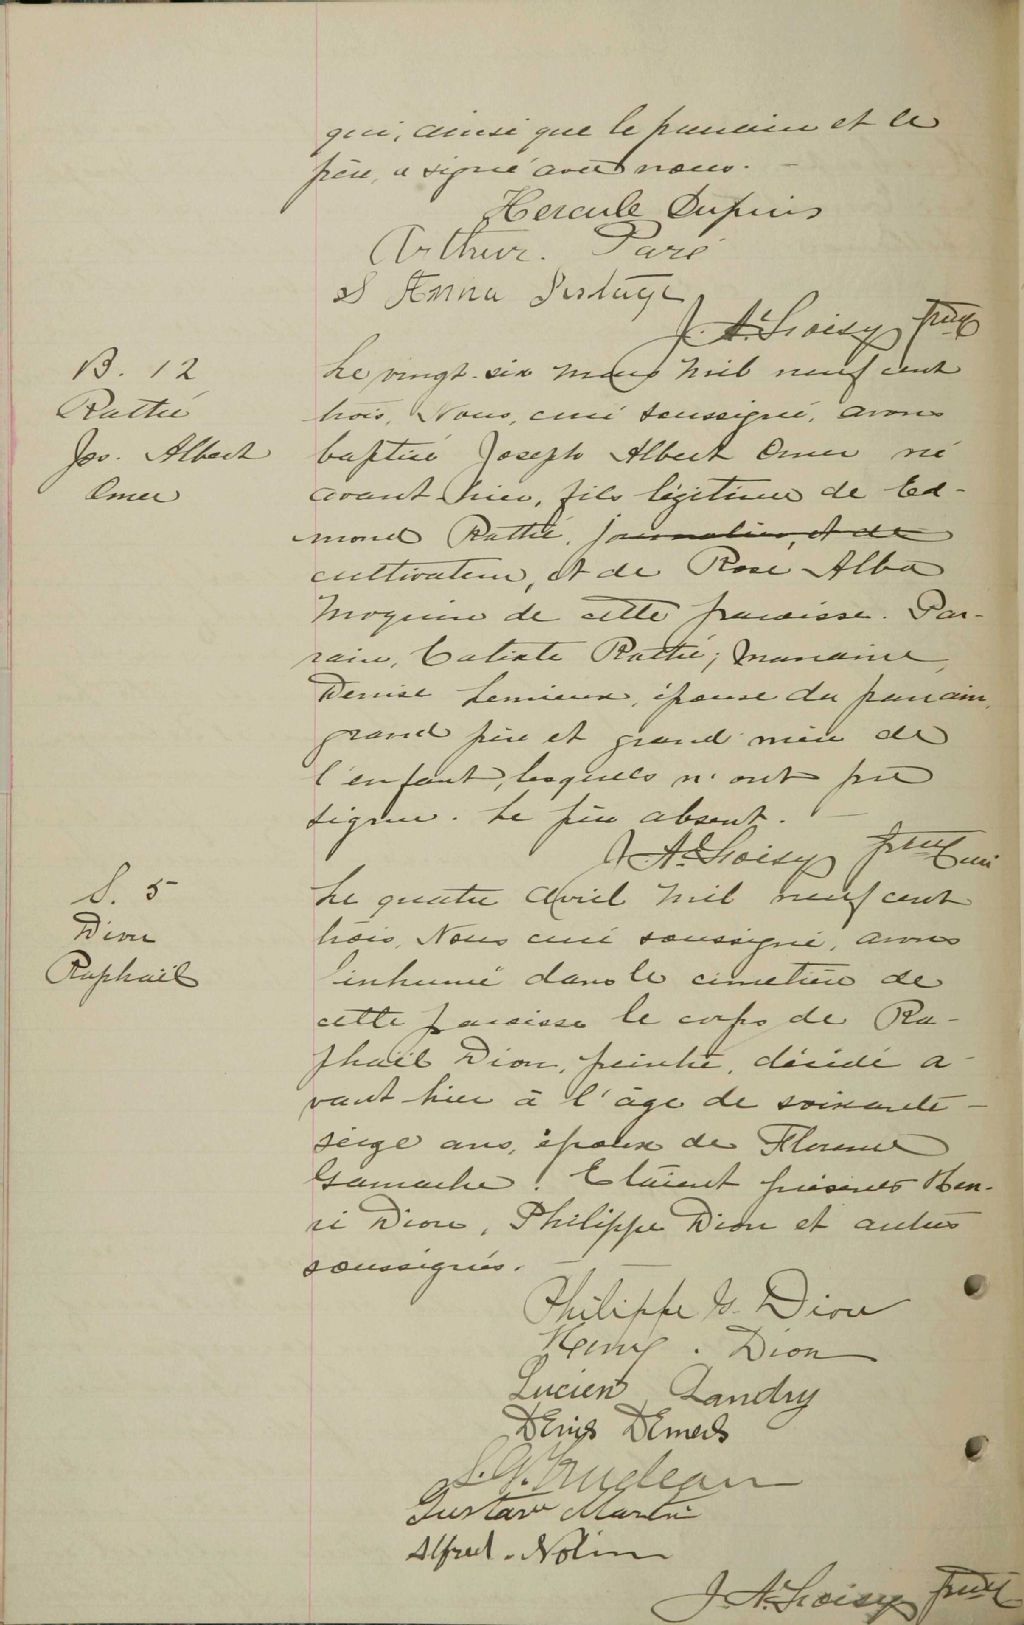 qui, ainsi que le parrain et le
père, a signé avec nous.
Hercule Dupuis
Arthur. Paré
Anna
J. A. Loisy ptre
B. 12
Rathé
Jos. Albert
Omer
Le vingt-six mars mil neuf cent
trois, Nous, curé soussigné, avons
baptisé Joseph Albert Omer né
avant hier, fils légitime de Ed-
mond Rathé, journalier, et de
cultivateur, et de Rose Alba
Moquin de cette paroisse. Par-
rain, Calixte Rathé; marraine,
Denise Lemieux, épouse du parrain,
grand père et grand'mère de
l'enfant, lesquels n'ont pu
signer. Le père absent.
J. A. Loisy ptre curé
S. 5
Dion
Raphaël
Le quatre Avril mil neuf cent
trois, Nous curé soussigné, avons
inhumé dans le cimetière de
cette paroisse le corps de Ra-
phaël Dion, peintre, décédé a-
vant hier à l'âge de soixante-
seize ans, époux de Florence
Gamache. Etaient présents Hen-
ri Dion, Philippe Dion et autres
soussignés.
Philippe G. Dion
Henry. Dion
Lucien Landry
Denis Demers
S. G. Trudeau
Gustave Martin
Alfred. Nolin
J. A. Loisy ptre